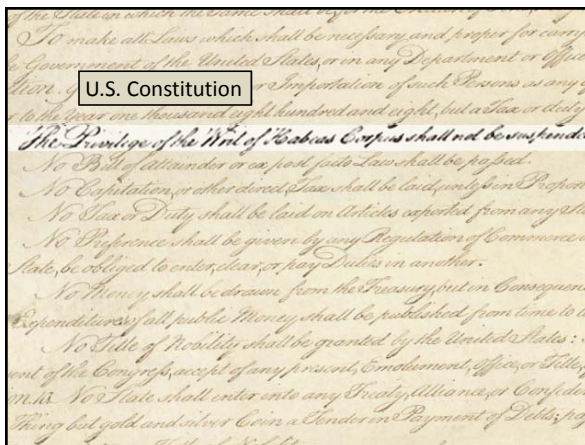 of the State in which the Same shall be for the Erection of
To make all Laws which shall be necessary and proper for carry
Government of the United States, or in any Department or Officer
U.S. Constitution
or Importation of such Persons as any
to the Year one thousand eight hundred and eight, but a Tax or duty
The Privilege of the Writ of Habeas Corpus shall not be suspende
No Bill of attainder or ex post facto Law shall be passed.
No Capitation, or other direct, Tax shall be laid, unless in Propor
No Tax or Duty shall be laid on Articles exported from any Sta
No Preference shall be given by any Regulation of Commerce
State, be obliged to enter, clear, or pay Duties in another.
No Money shall be drawn from the Treasury, but in Consequen
Expenditures of all public Money shall be published from time to
No Title of Nobility shall be granted by the United States:
of the Congress, accept of any present, Emolument, Office, or Title,
No State shall enter into any Treaty, Alliance, or Confede
Thing but gold and silver Coin a Tender in Payment of Debts;